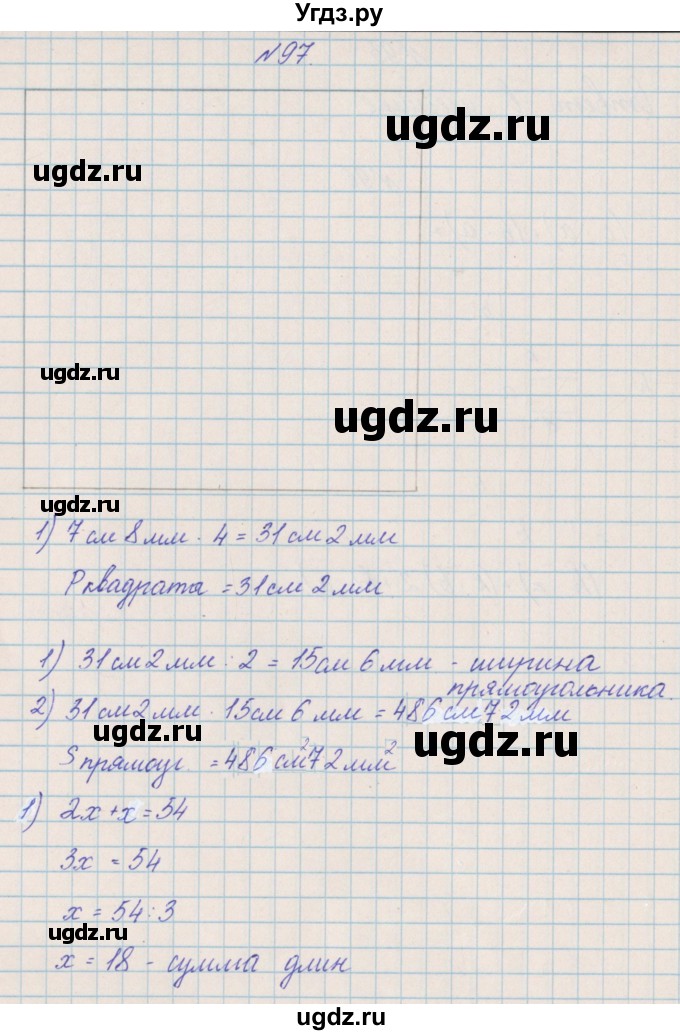 Угдз.ру
№97.
ugdz.ru
ugdz.ru
ugdz.ru
ugdz.ru
ugdz.ru
1) 7 см 8 мм · 4 = 31 см 2 мм
Pквадрата = 31 см 2 мм
1) 31 см 2 мм : 2 = 15 см 6 мм - ширина
прямоугольника.
2) 31 см 2 мм · 15 см 6 мм = 486 см 72 мм
ugdz.ru
ugdz.ru
Sпрямоуг. = 486 см² 72 мм²
1) 2x + x = 54
3x = 54
x = 54 : 3
ugdz.ru
x = 18 - сумма длин